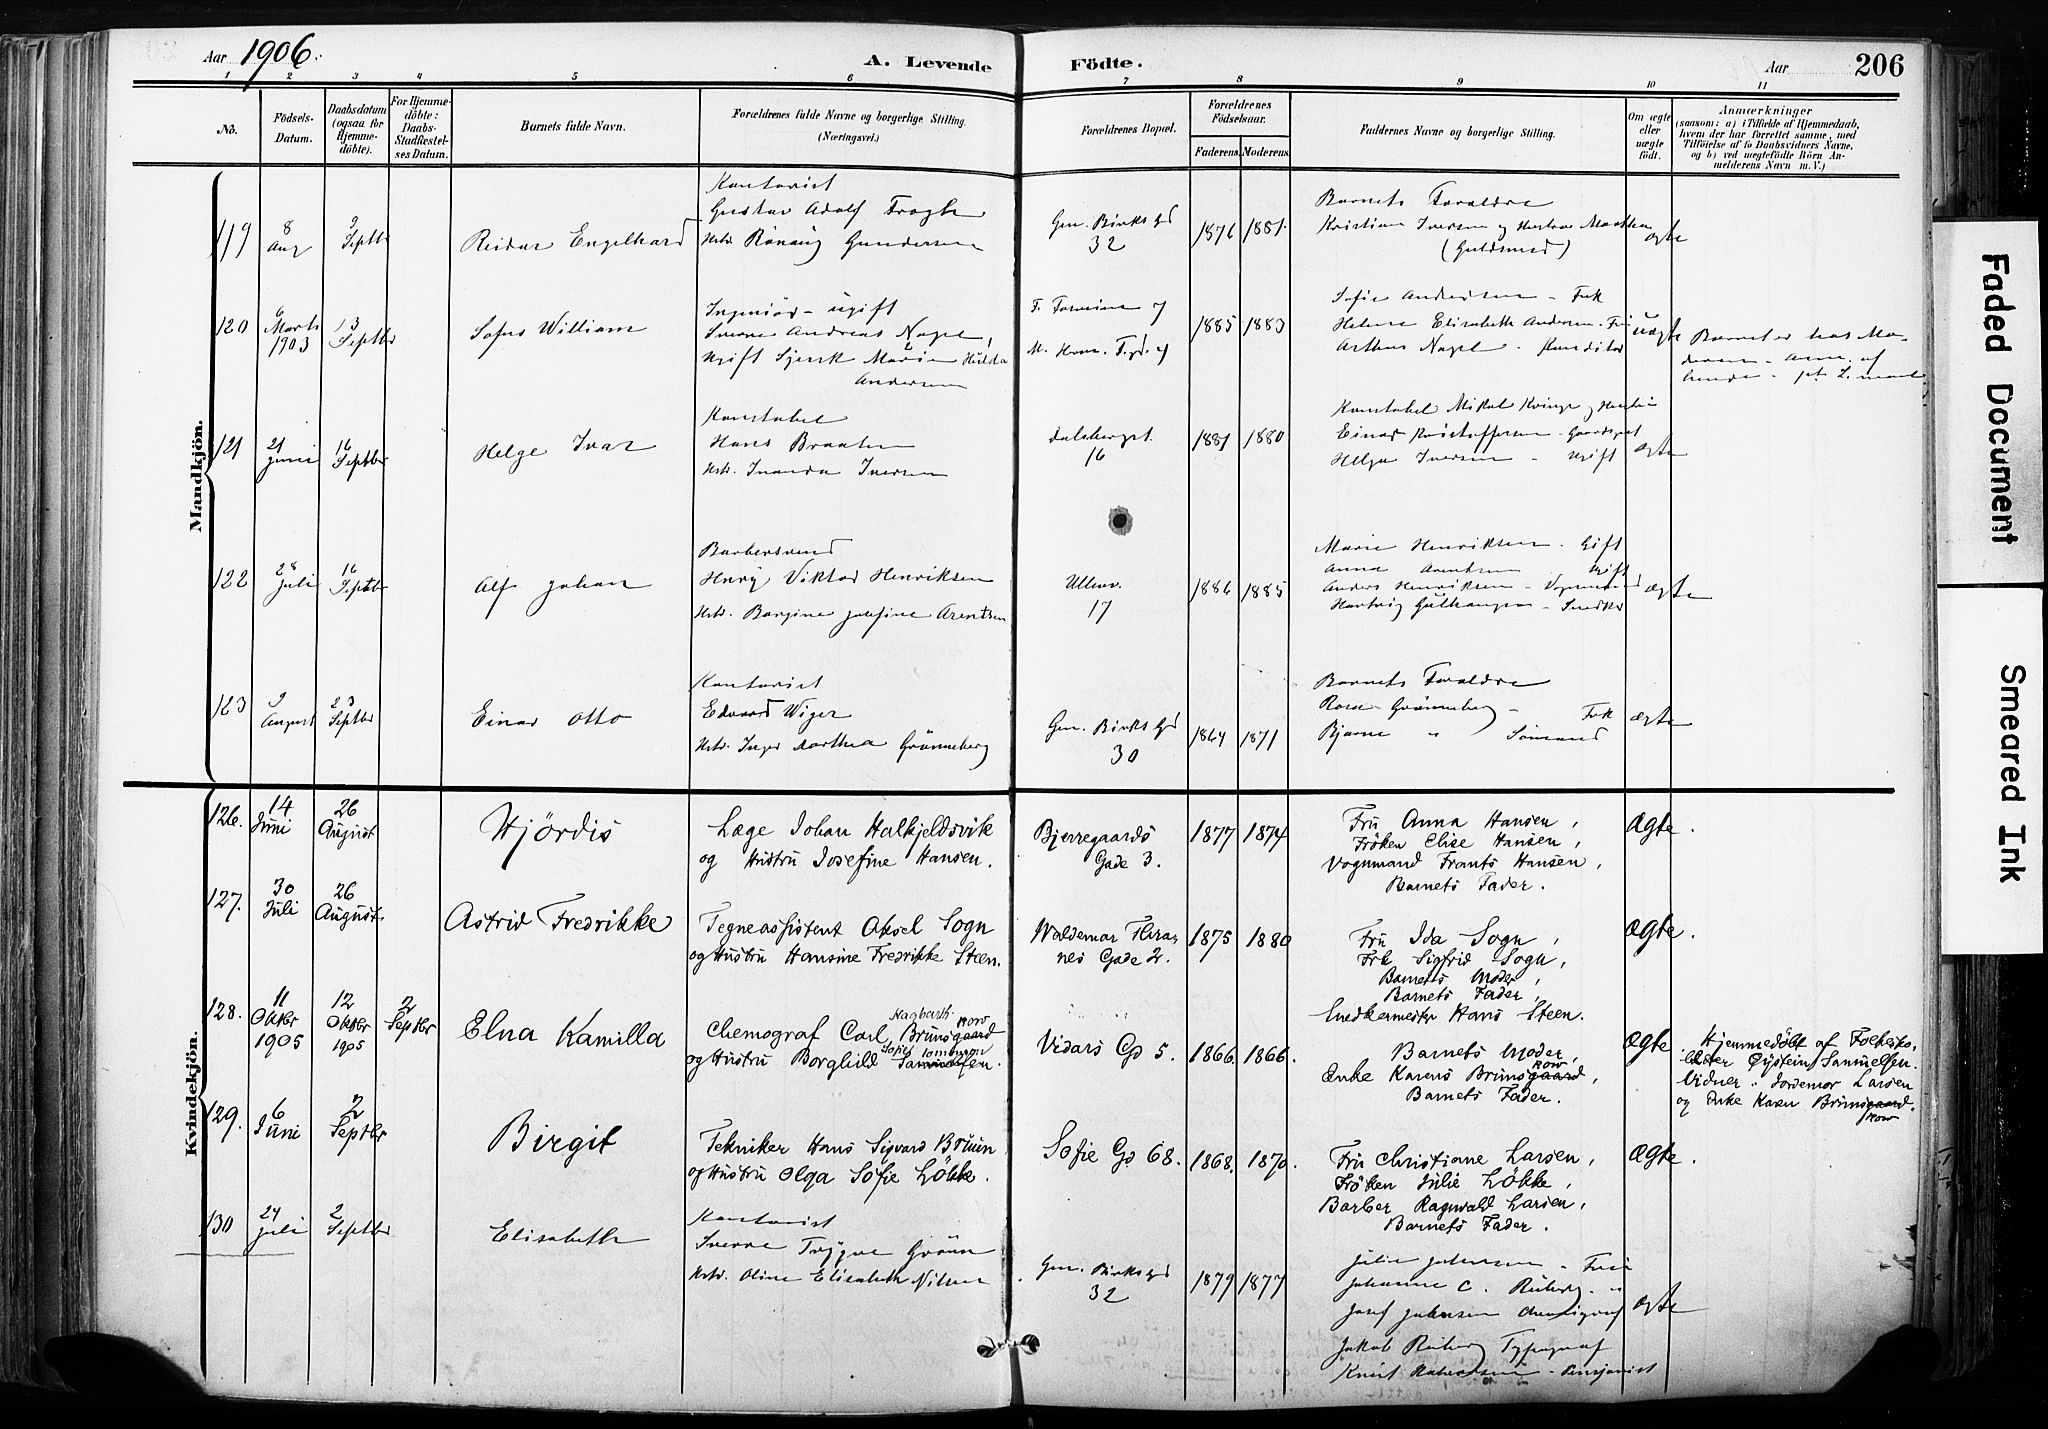 Aar 1906.
A. Levende Födte.
Aar
206
1 2 3 4 5 6 7 8 9 10 11
No.
Födsels-
Datum.
Daabsdatum
(ogsaa for
Hjemme-
döbte).
For Hjemme-
döbte:
Daabs-
Stadfæstel-
ses Datum.
Barnets fulde Navn.
Forældrenes fulde Navne og borgerlige Stilling.
(Næringsvei.)
Forældrenes Bopæl.
Forældrenes
Födselsaar.
Faderens. Moderens.
Faddernes Navne og borgerlige Stilling.
Om ægte
eller
uægte
födt.
Anmærkninger
(saasom: a) i Tilfælde af Hjemmedaab,
hvem der har forrettet samme, med
Tilföielse af to Daabsvidners Navne,
og b) ved uegtefödte Börn An-
melderens Navn m. V.)
Mandkjön.
119
8
Aug
Septbr
Reidar Engelhard
Kontorist
Gustav Adolf
Hstr. Rönaug Gundersen
Gen. Birks Gd
32
1876 1881.
Barnets Foraldre
Kristian Iversen og Hustru
(Guldsmed)
ægte
120
6
Marts
1903
13
Septbr
Sofus William
Ingeniör - ugift
Sverre Andreas Nagel,
Ugift Marie Hulda
Andersen
1885 1883
Sofie Andersen - Frk
Helene Elisabeth Andersen - Fru
Arthur Nagel - Konditor
uægte
Barnet er hos Mo-
deren - Anm. af
hende -
121
21
Juni
16
Septbr
Helge Ivar
Konstabel
Hans Braaten
Hstr. Iversen
Dalsbergst.
16
1881 1880
Konstabel Mikal
Einar Kristoffersen - Gaardsgut
Helga Iversen - Ugift
ægte
122
28
Juli
16
Septbr
Alf Johan
Barbersvend
Henry Viktor Henriksen
Hstr. Borgine Josefine Arentsen
Ullev.
17
1886 1885
Marie Henriksen - Gift
Anna Arentsen Ugift
Anders Henriksen - Vognmand
Hartvig - Snedker
ægte
123
August
23
Septbr
Einar Otto
Kontorist
Edvard Wiger
Hstr. Inger Marthea Grönneberg
Gen. Birks Gd
30
1864 1871
Barnets Foraldre
Rosa Grönneberg - Frk
Bjarne " Sömand
ægte
Kvindekjön.
126.
14
Juni
26
August
Hjördis
Læge Johan Halkjeldsvik
og Hustru Josefine Hansen.
Bjerregaards
Gade 3.
1877 1874
Fru Anna Hansen,
Fröken Elise Hansen,
Vognmand Frants Hansen,
Barnets Fader.
Ægte.
127.
30
Juli
26
August
Astrid Fredrikke
Tegneassistent Aksel Sogn
og Hustru Hansine Fredrikke Steen.
Waldemar Thra-
nes Gade 2.
1875 1880
Fru Ida Sogn,
Frk Sigfrid Sogn,
Barnets Moder,
Barnets Fader,
Snedkermester Hans Steen.
Ægte.
128.
11
Oktbr
1905
12
Oktbr
1905
2
Septbr
Elna Kamilla
Hagbarth kow
Chemograf Carl, Brunsgaard
Sofie
og Hustru Borghild Samuelsen.
Vidars Gd 5.
1866. 1866.
Barnets Moder,
kow
Enke Karens Brunsgaard,
Barnets Fader.
Ægte
Hjemmedöbt af Folkesko-
lelærer Öystein Samuelsen.
Vidner: Jordemor Larsen
og Enke Karen Brunsgaard.
kow
129.
6
Juni
2
Septbr
Birgit
Tekniker Hans Sigvard Bruun
og Hustru Olga Sofie Lökke.
Sofie Gd 68.
1868. 1870.
Fru Christiane Larsen,
Fröken Julie Lökke,
Barber Ragnvald Larsen,
Barnets Fader.
Ægte.
130
24
Juli
2
Septbr
Elisabeth
Kontorist
Sverre Trygve Grönn
Hstr. Oline Elisabeth Nilsen
Gen. Birks Gd
32
1879 1877
Julie Johansen - Fru
Johanne C. Ruberg - "
Josef Johansen Chemigraf
Jakob Ruberg Typograf
Knut - Pensjonist
ægte
Faded Document
Smeared Ink